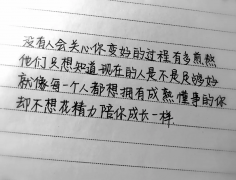 没有人会关心你变好的过程有多煎熬
他们只想知道现在的人是不是足够好
就像每一个人都想拥有成熟懂事的你
却不想花精力陪你成长一样